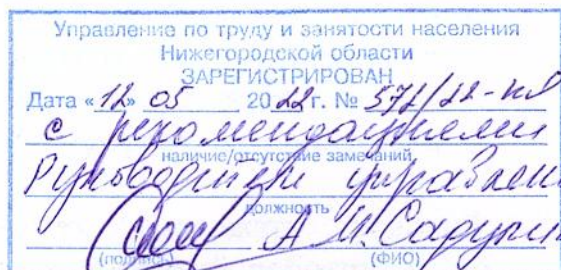 Управление по труду и занятости населения
Нижегородской области
ЗАРЕГИСТРИРОВАН
Дата «12» 05 2022 г. №
с рекомендациями
наличие/отсутствие замечаний
Руководитель
должность
А.М.
(подпись) (ФИО)